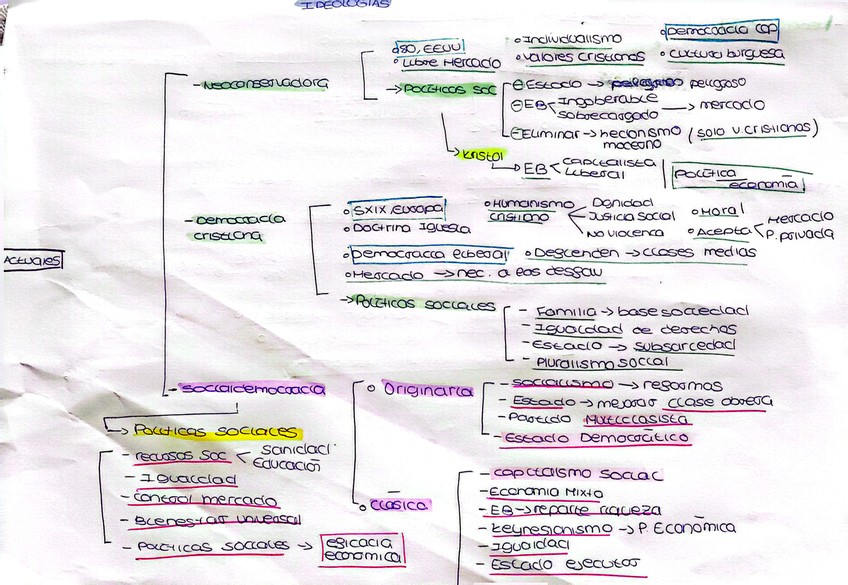 IDEOLOGÍAS
ACTUALES
- Neoconservadora
d80, EEUU
Individualismo
Democracia cap
Libre Mercado
Valores cristianos
cultura burguesa
→ Políticas soc
⊖ Estado → peligroso
⊖ EB < Ingobernable
sobrecargado
→ mercado
⊖ Eliminar → hedonismo (solo v.cristianos)
moderno
→ Kristol
→ EB < capitalista
liberal
política
economía
- Democracia
cristiana
SXIX Europa
Humanismo
cristiano
Dignidad
Justicia social
No violencia
Moral
Acepta < Mercado
P. privada
Doctrina Iglesia
Democracia liberal
Descienden → clases medias
Mercado → nec. a los desfav
→ Políticas sociales
- Familia → base sociedad
- Igualdad de derechos
- Estado → subsariedad
- Pluralismo social
- Socialdemocracia
Originaria
- socialismo → reformas
- Estado → mejorar clase obrera
- Partido Multiclasista
- Estado Democrático
→ Políticas sociales
- recursos soc < Sanidad
Educación
- Igualdad
- control mercado
- Bienestar universal
- Políticas sociales → eficacia
económica
Clásica
- capitalismo social
- Economía Mixta
- EB → reparte riqueza
- Keynesionismo → P. Económica
- Igualdad
- Estado ejecutor